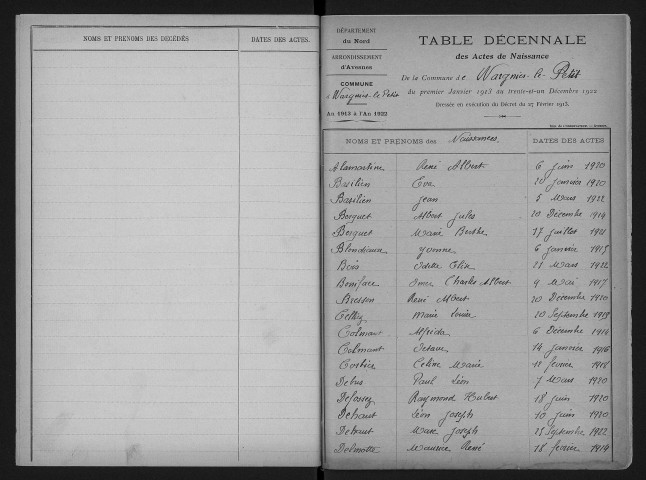 NOMS ET PRÉNOMS DES DÉCÉDÉS DATES DES ACTES.
DÉPARTEMENT
du Nord
ARRONDISSEMENT
d'Avesnes
COMMUNE
Wargnies-le-Petit
An 1913 à l'An 1922
TABLE DÉCENNALE
des Actes de Naissance
De la Commune de Wargnies-le-Petit
du premier Janvier 1913 au trente-et-un Décembre 1922
Dressée en exécution du Décret du 27 Février 1913.
NOMS ET PRÉNOMS des Naissances DATES DES ACTES
Alamartine René Albert 6 juin 1920
Basilien Eva 20 janvier 1920
Basilien Jean 5 Mars 1922
Berquet Albert Jules 20 Décembre 1914
Berquet Marie Berthe 17 juillet 1921
Yvonne 6 janvier 1915
Bois Odette Elise 21 Mars 1922
Boniface Omer Charles Albert 9 Mai 1917
Bresson René Albert 20 Décembre 1920
Marie Louise 20 Septembre 1919
Colmant Alfrida 6 Décembre 1914
Colmant Octave 14 janvier 1916
Céline Marie 11 février 1918
Debus Paul Léon 7 Mars 1920
Defossez Raymond Hubert 18 juin 1920
Dehaut Léon Joseph 10 juin 1920
Dehaut Marc Joseph 23 Septembre 1922
Delmotte Maurice René 18 février 1914